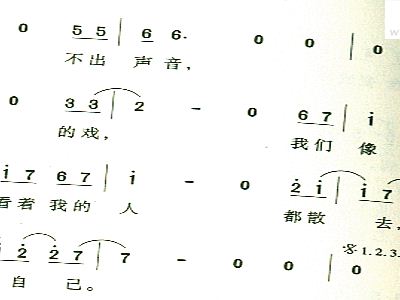 0 5 5 | 6 6· 0 0 | 0
不出 声音，
0 3 3 | 2 - 0 6 7 | i
的戏， 我们 像
i 7 6 7 | i - 0 2 i | i 7
看着我的 人 都散 去，
𝄋 1.2.3.
i 2 2 7 | 7 - 0 0 | 0
自 己。